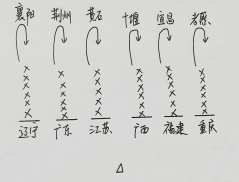 襄阳 荆州 黄石 十堰 宜昌 孝感
辽宁 广东 江苏 广西 福建 重庆